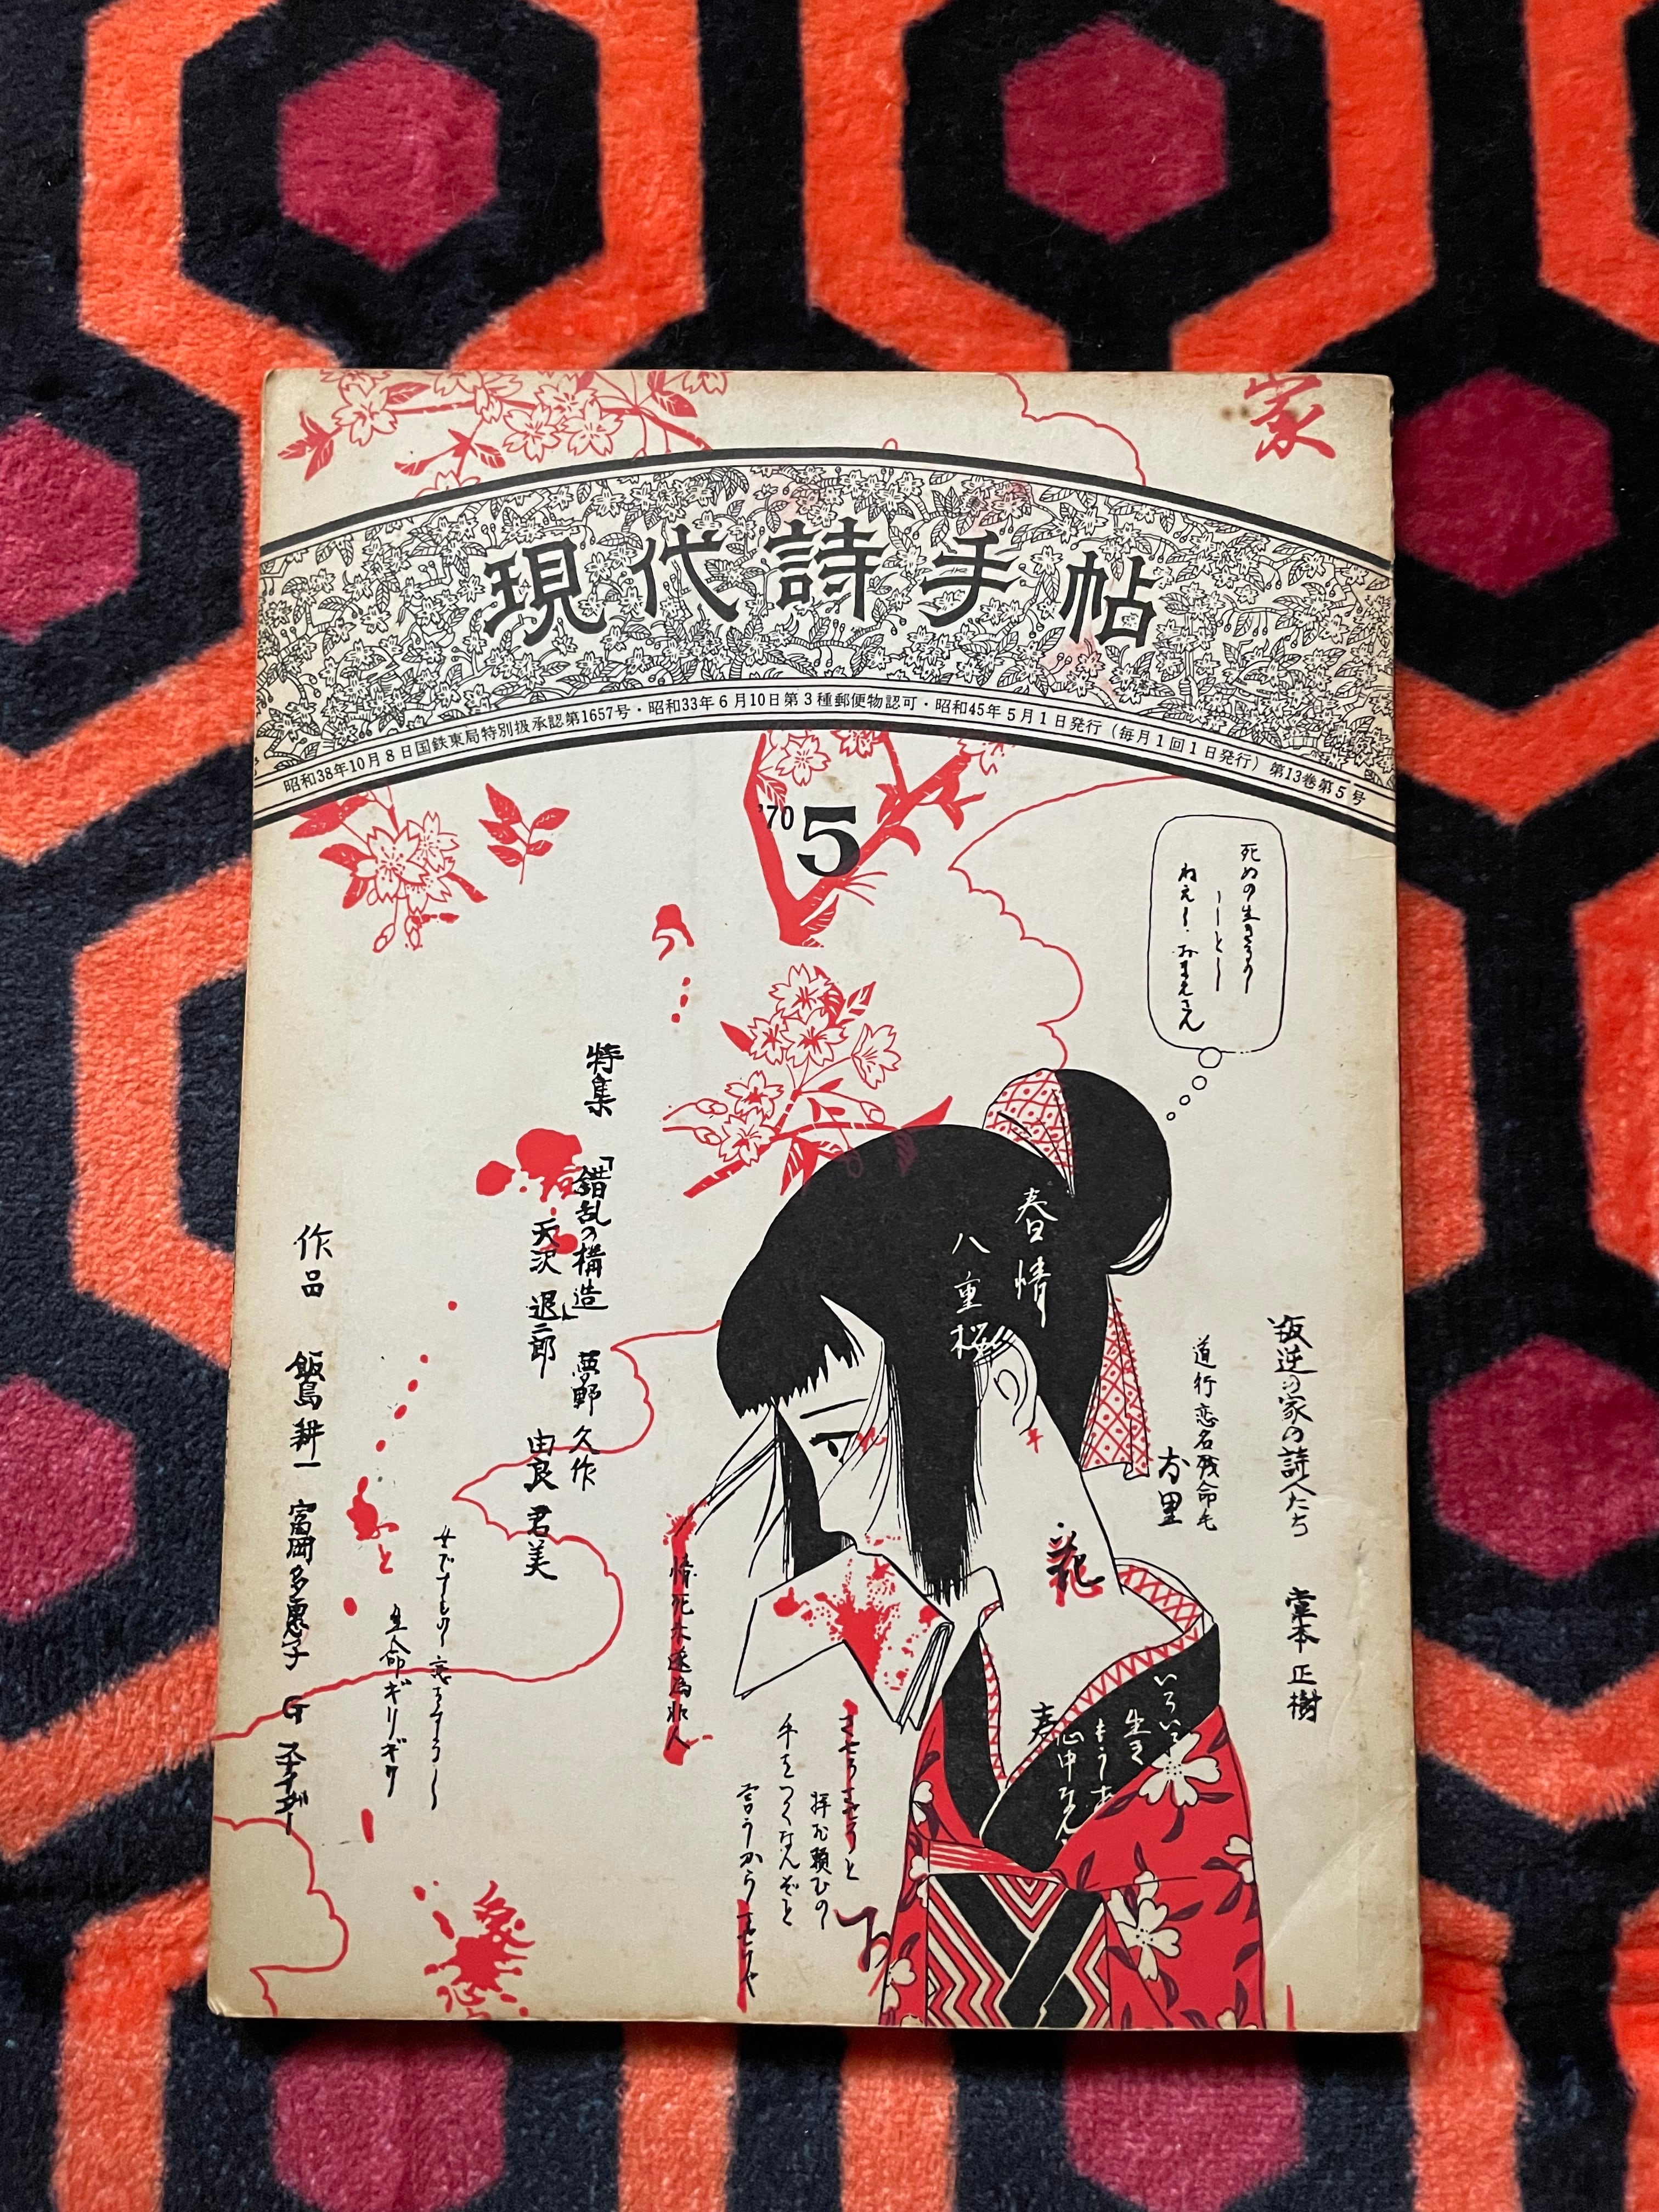 家
現代詩手帖
昭和38年10月8日国鉄東局特別扱承認第1657号・昭和33年6月10日第3種郵便物認可・昭和45年5月1日発行(毎月1回1日発行)第13巻第5号
'70 5
死ぬの生きるの
ーーとー
ねえー おまえさん
春情
八重桜
叛逆の家の詩人たち 堂本正樹
道行恋名残命毛
お里
花
特集 「錯乱の構造」 夢野久作
天沢退二郎 由良君美
女ですもの 恋もする
と 生命ギリギリ
作品 飯島耕一 富岡多恵子 G スナイダー
いろいろ
生き
もうあ
心中なん
春
拝お頼むの
手をつくなんぞと
言うから